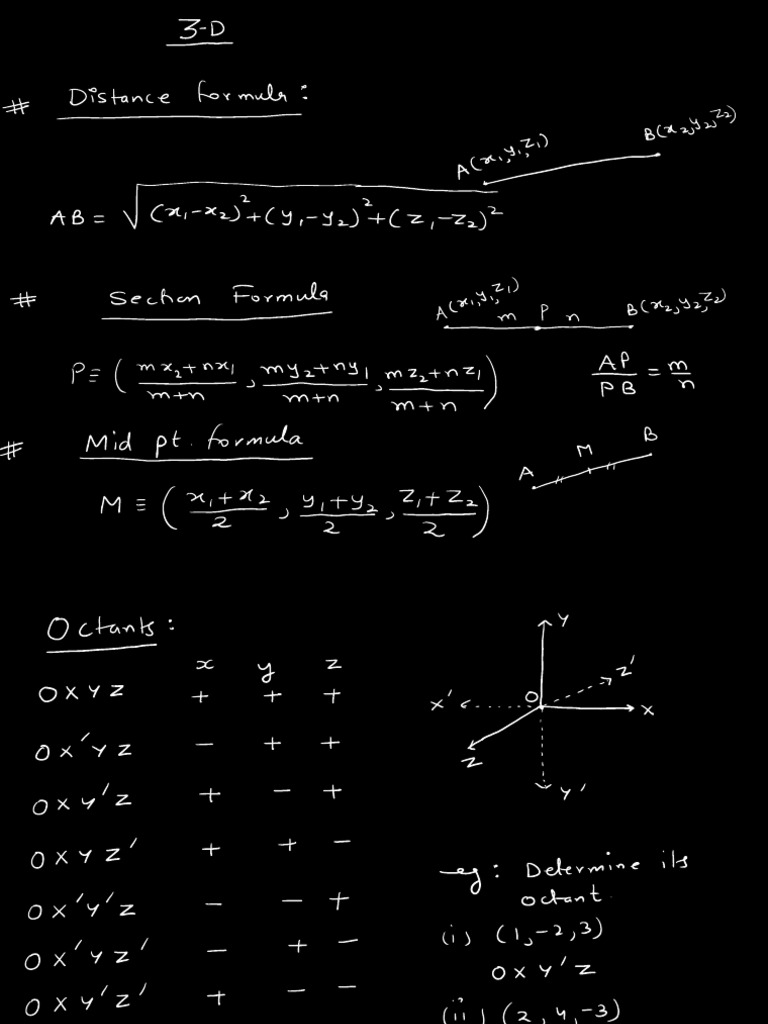 3-D
# Distance formula:
A(x₁,y₁,z₁) B(x₂,y₂,z₂)
AB = √((x₁-x₂)²+(y₁-y₂)²+(z₁-z₂)²)
# Section Formula
A(x₁,y₁,z₁) m P n B(x₂,y₂,z₂)
P≡ ((mx₂+nx₁)/(m+n), (my₂+ny₁)/(m+n), (mz₂+nz₁)/(m+n)) AP/PB = m/n
# Mid pt. formula
A M B
M ≡ ((x₁+x₂)/2, (y₁+y₂)/2, (z₁+z₂)/2)
Octants:
x y z
OXYZ + + +
OX'YZ - + +
OXY'Z + - +
OXYZ' + + -
OX'Y'Z - - +
OX'YZ' - + -
OXY'Z' + - -
Y
Z'
X' O X
Z
Y'
eg: Determine its
octant.
(i) (1,-2,3)
OXY'Z
(ii) (2,4,-3)